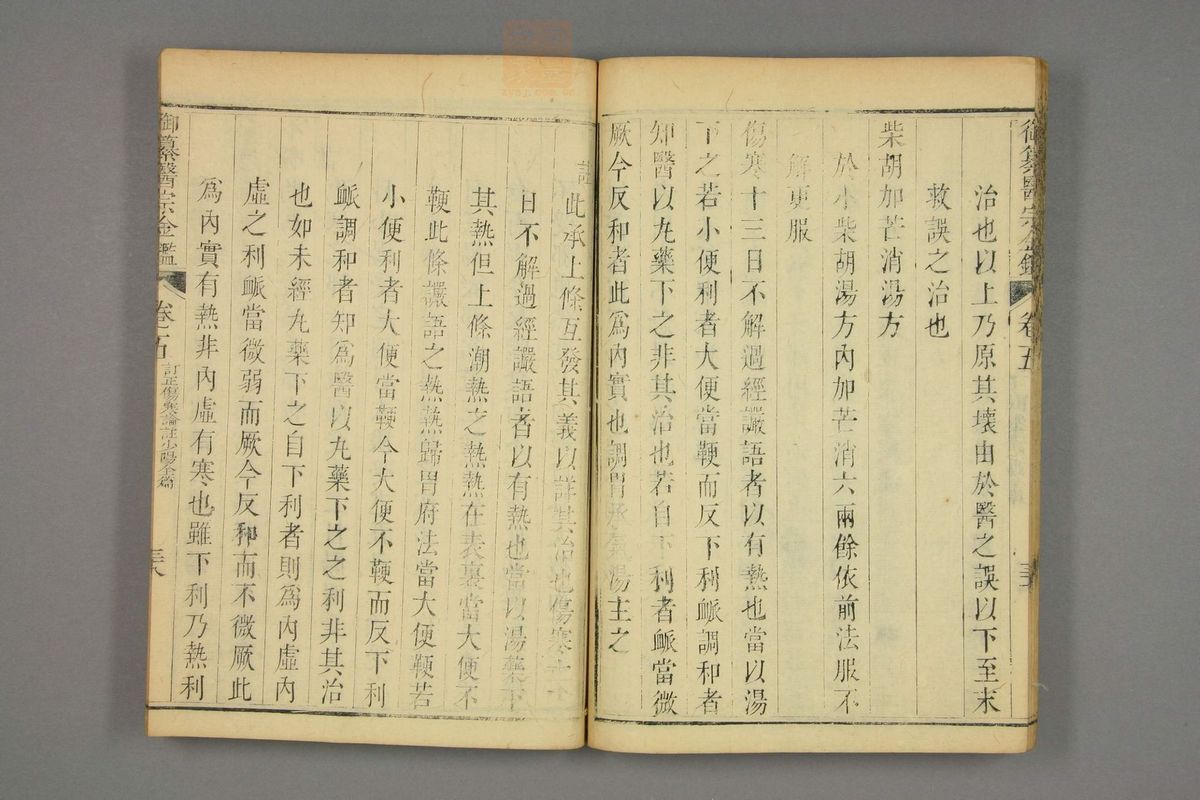 御纂醫宗金鑑 卷五
治也以上乃原其壞由於醫之誤以下至末
救誤之治也
柴胡加芒消湯方
於小柴胡湯方內加芒消六兩餘依前法服不
解更服
傷寒十三日不解過經讝語者以有熱也當以湯
下之若小便利者大便當鞕而反下利䘑調和者
知醫以丸藥下之非其治也若自下利者䘑當微
厥今反和者此爲內實也調胃承氣湯主之
註
此承上條互發其義以詳其治也傷寒十三
日不解過經讝語者以有熱也當以湯藥下
其熱但上條潮熱之熱熱在表裏當大便不
鞕此條讝語之熱熱歸胃府法當大便鞕若
小便利者大便當鞕今大便不鞕而反下利
䘑調和者知爲醫以丸藥下之之利非其治
也如未經丸藥下之自下利者則爲內虛內
虛之利䘑當微弱而厥今反和而不微厥此
爲內實有熱非內虛有寒也雖下利乃熱利
御纂醫宗金鑑 卷五 訂正傷寒論註少陽全篇 三八